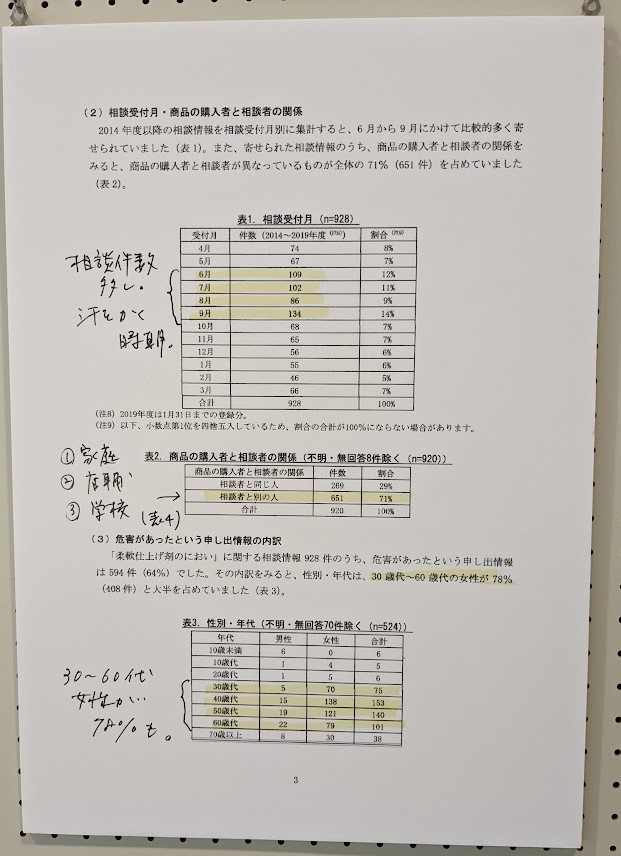 (2) 相談受付月・商品の購入者と相談者の関係
2014年度以降の相談情報を相談受付月別に集計すると、6月から9月にかけて比較的多く寄
せられていました(表1)。また、寄せられた相談情報のうち、商品の購入者と相談者の関係を
みると、商品の購入者と相談者が異なっているものが全体の71%(651件)を占めていました
(表2)。
表1. 相談受付月 (n=928)
受付月 件数(2014~2019年度(注8)) 割合(注9)
4月 74 8%
5月 67 7%
6月 109 12%
7月 102 11%
8月 86 9%
9月 134 14%
10月 68 7%
11月 65 7%
12月 56 6%
1月 55 6%
2月 46 5%
3月 66 7%
合計 928 100%
相談件数
多し。
汗をかく
時期。
(注8) 2019年度は1月31日までの登録分。
(注9) 以下、小数点第1位を四捨五入しているため、割合の合計が100%にならない場合があります。
①家庭
②店舗
③学校
(表4)
→
表2. 商品の購入者と相談者の関係(不明・無回答8件除く(n=920))
商品の購入者と相談者の関係 件数 割合
相談者と同じ人 269 29%
相談者と別の人 651 71%
合計 920 100%
(3) 危害があったという申し出情報の内訳
「柔軟仕上げ剤のにおい」に関する相談情報928件のうち、危害があったという申し出情報
は594件(64%)でした。その内訳をみると、性別・年代は、30歳代~60歳代の女性が78%
(408件)と大半を占めていました(表3)。
表3. 性別・年代(不明・無回答70件除く(n=524))
年代 男性 女性 合計
10歳未満 6 0 6
10歳代 1 4 5
20歳代 1 5 6
30歳代 5 70 75
40歳代 15 138 153
50歳代 19 121 140
60歳代 22 79 101
70歳以上 8 30 38
30~60代
女性が…
78%も。
3